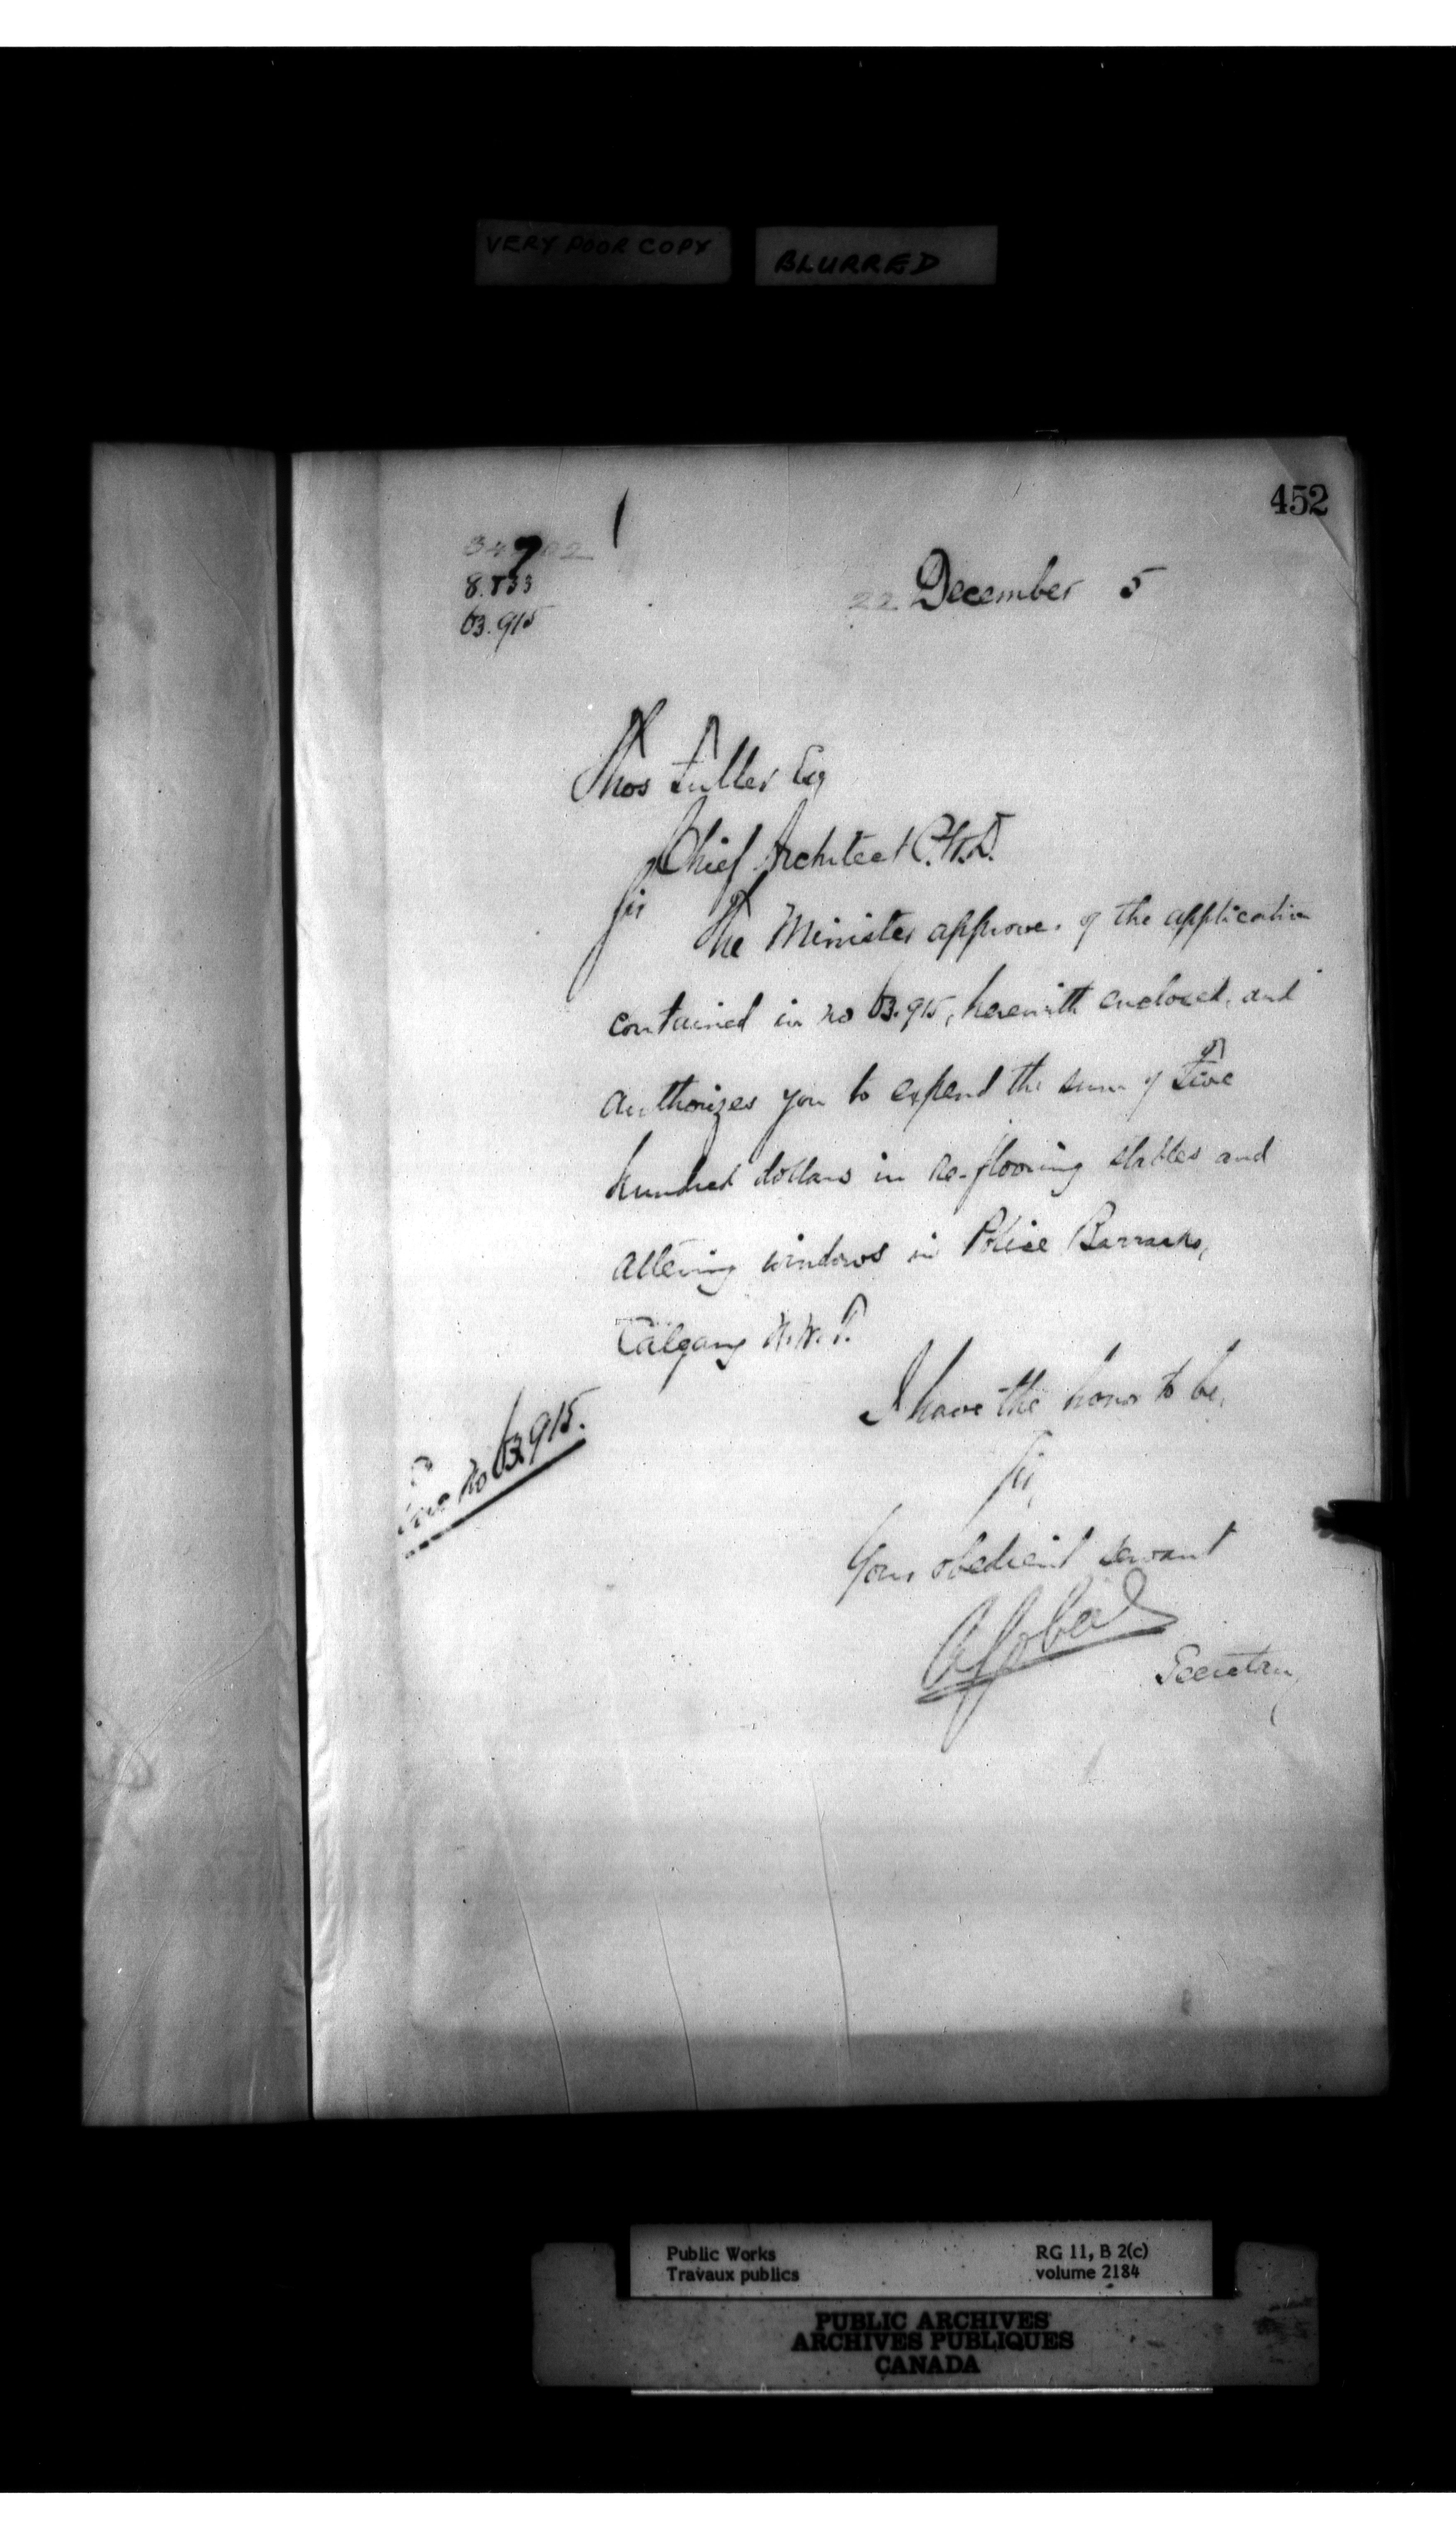 VERY POOR COPY BLURRED
452
8.833
63.915
22 December 5
Thos Fuller Esq
Chief Architect P.W.D.
Sir
The Minister approves of the application
contained in no 63.915, herewith enclosed, and
authorizes you to expend the sum of Five
hundred dollars in re-flooring stables and
altering windows in Police Barracks,
Calgary N.W.T.
I have the honor to be,
Sir,
Your obedient servant
Secretary
Enc no 63.915.
Public Works RG 11, B 2(c)
Travaux publics volume 2184
PUBLIC ARCHIVES
ARCHIVES PUBLIQUES
CANADA